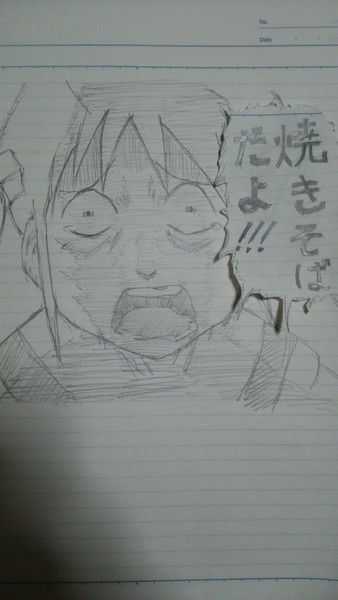 No.
Date
焼きそば
だよ!!!